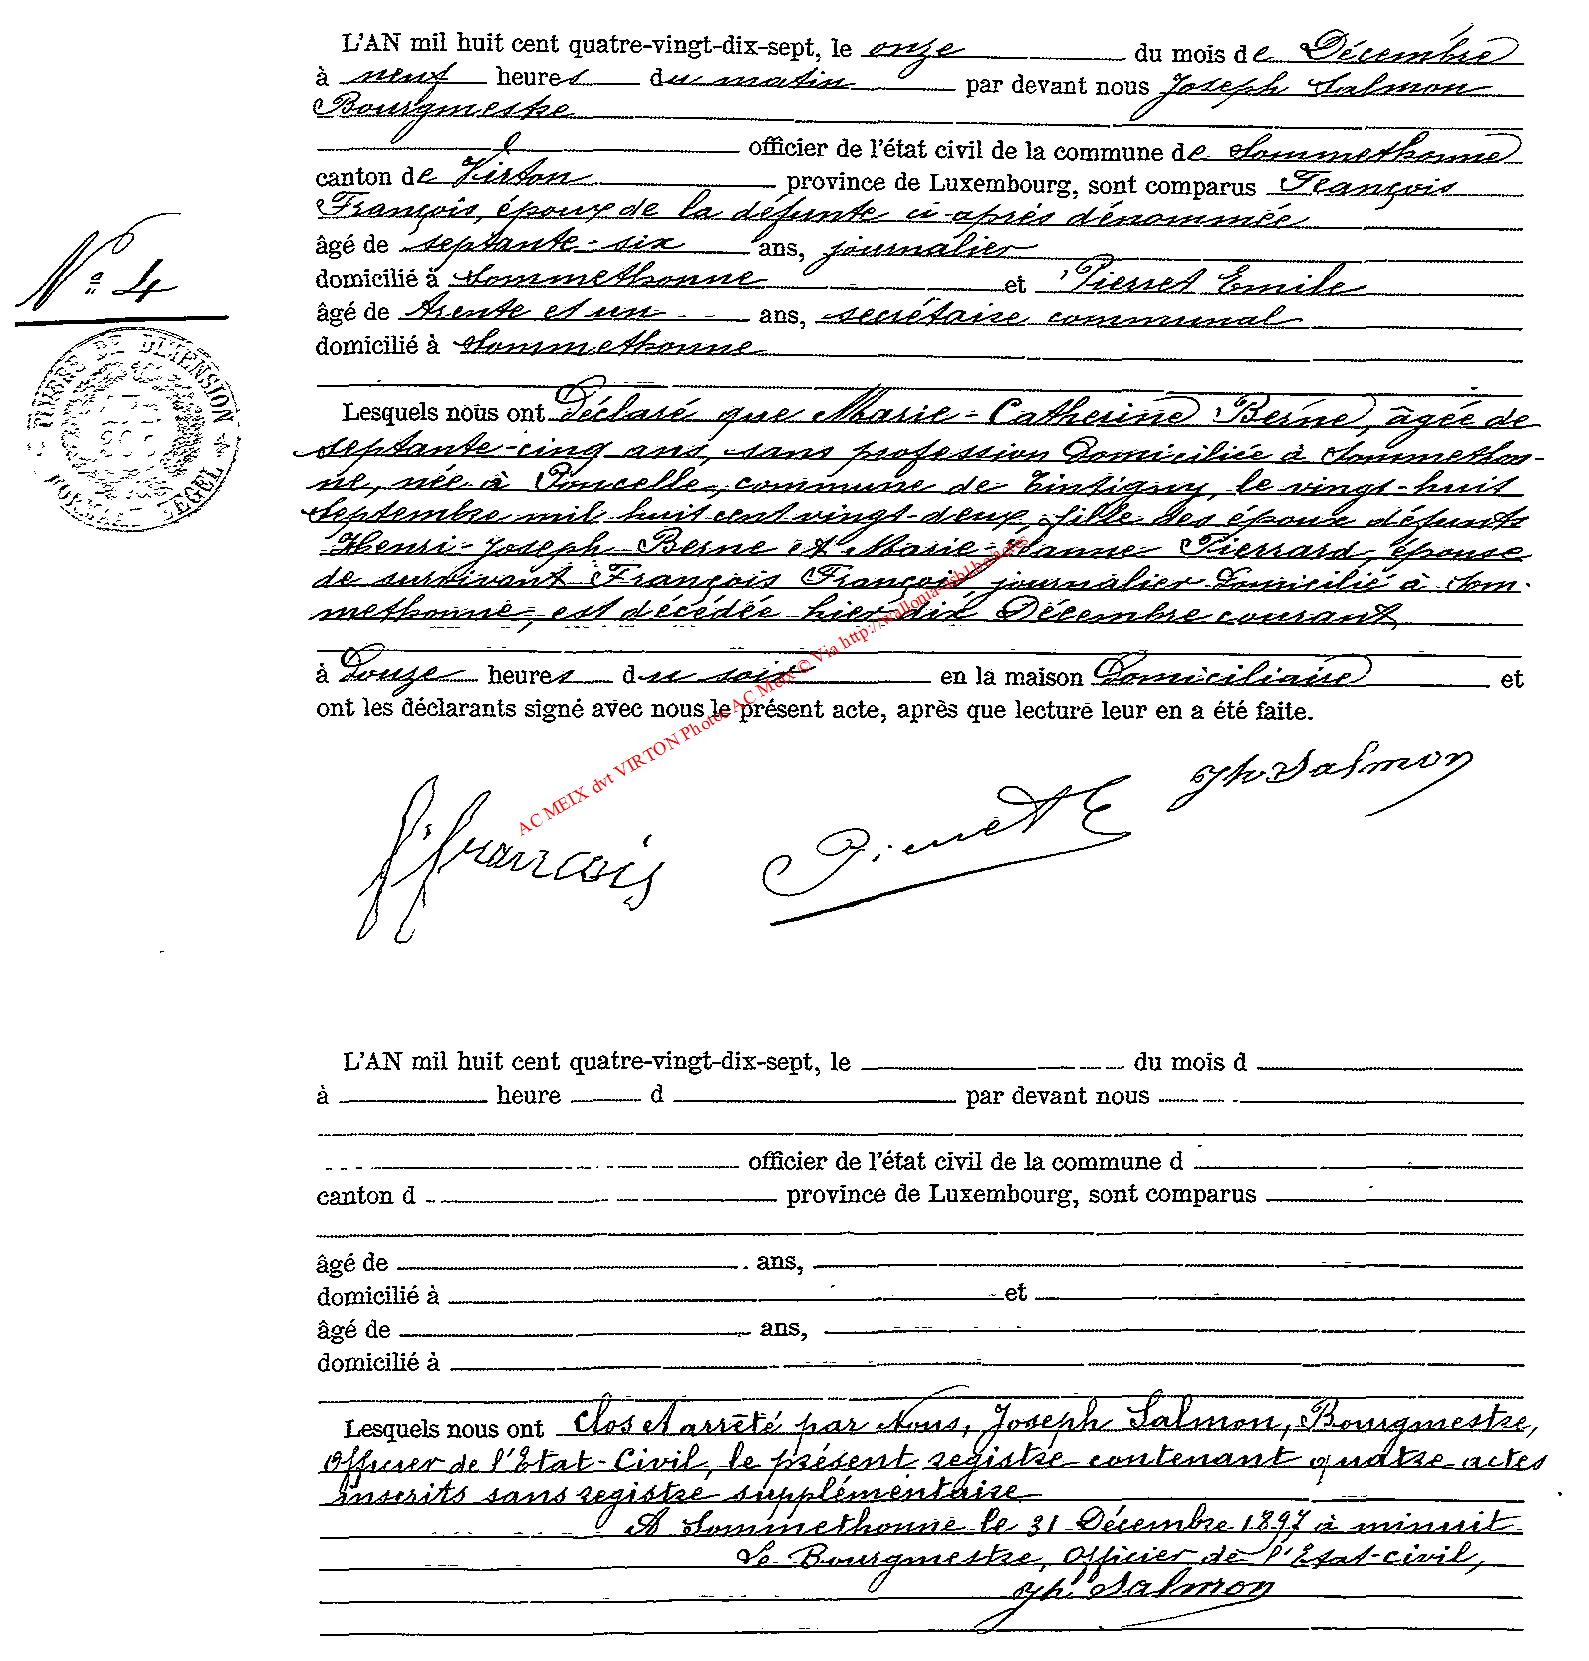 L'AN mil huit cent quatre-vingt-dix-sept, le onze du mois de Décembre
à neuf heures du matin par devant nous Joseph Salmon
Bourgmestre
officier de l'état civil de la commune de Sommethonne
canton de Virton province de Luxembourg, sont comparus François
François, époux de la défunte ci-après dénommée
âgé de septante-six ans, journalier
domicilié à Sommethonne et Pierret Emile
âgé de trente et un ans, secrétaire communal
domicilié à Sommethonne
N° 4
TIMBRE DE DIMENSION
SEGEL
Lesquels nous ont Déclaré que Marie-Catherine Berne, âgée de
septante-cinq ans, sans profession Domiciliée à Sommethon-
ne, née à Poncelle, commune de Tintigny, le vingt-huit
Septembre mil huit cent vingt-deux, fille des époux défunts
Henri-Joseph Berne et Marie-Jeanne Pierrard, épouse
de survivant François François, journalier Domicilié à Som-
methonne, est décédée hier dix Décembre courant
à Douze heures du soir en la maison Domiciliaire et
ont les déclarants signé avec nous le présent acte, après que lecture leur en a été faite.
AC MEIX dvt VIRTON Photos AC Meix © Via http://wallonia-asbl.be/actes
Jh Salmon
F. François
Pierret E
L'AN mil huit cent quatre-vingt-dix-sept, le du mois d
à heure d par devant nous
officier de l'état civil de la commune d
canton d province de Luxembourg, sont comparus
âgé de ans,
domicilié à et
âgé de ans,
domicilié à
Lesquels nous ont Clos et arrêté par Nous, Joseph Salmon, Bourgmestre,
Officier de l'Etat-Civil, le présent registre contenant quatre actes
inscrits sans registre supplémentaire
A Sommethonne le 31 Décembre 1897 à minuit
Le Bourgmestre, Officier de l'Etat-civil,
Jh. Salmon